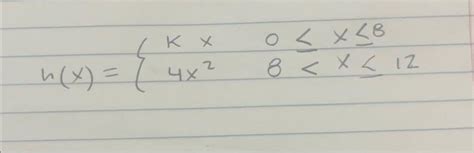 h(x) = { K x 0 ≤ x ≤ 8
4x² 8 < x ≤ 12